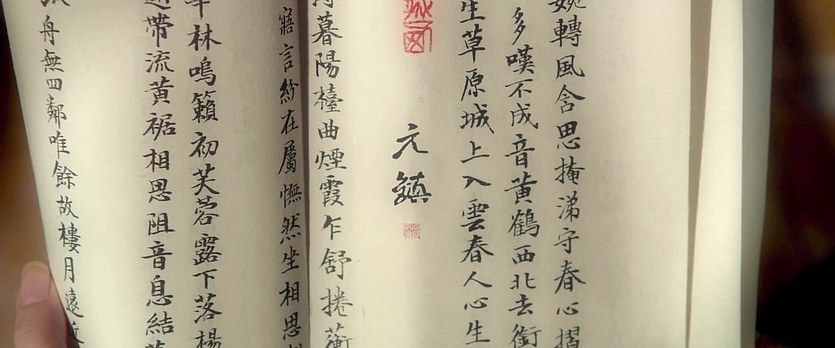 婉轉風含思掩涕守春心摺
多嘆不成音黃鶴西北去銜
生草原城上入雲春人心生
元鎮
暮陽臺曲煙霞乍舒捲蘅
寤言紛在屬憮然坐相思
林鳴籟初芙蓉露下落楊
帶流黃裾相思阻音息結
舟無四鄰唯餘故樓月遠